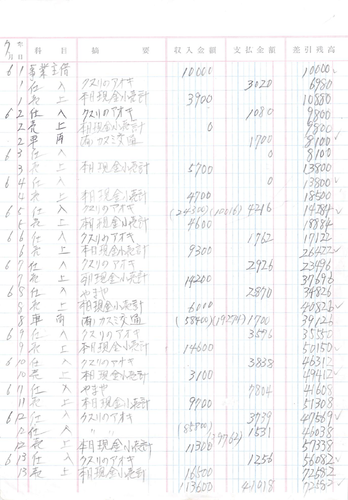 年 月 日 科 目 摘 要 収入金額 支払金額 差引残高
6 1 事業主借 10000 10000
1 仕 入 クスリのアオキ 3020 6980
1 売 上 本日現金小売計 3900 10880
6 2 仕 入 クスリのアオキ 1080 9800
2 売 上 本日現金小売計 0 9800
2 車 両 (有)カスミ交通 1700 8100
6 3 仕 入 0 8100
3 売 上 本日現金小売計 5700 13800
6 4 仕 入 0 13800
4 売 上 本日現金小売計 4700 18500
6 5 仕 入 クスリのアオキ (24300) (10016) 4216 14284
5 売 上 本日現金小売計 4600 18884
6 6 仕 入 クスリのアオキ 1762 17122
6 売 上 本日現金小売計 9300 26422
6 7 仕 入 クスリのアオキ 2926 23496
7 売 上 本日現金小売計 14200 37696
6 8 仕 入 やまや 2870 34826
8 売 上 本日現金小売計 6000 40826
8 車 両 (有)カスミ交通 (58400) (19274) 1700 39126
6 9 仕 入 クスリのアオキ 3576 35550
9 売 上 本日現金小売計 14600 50150
6 10 仕 入 クスリのアオキ 3838 46312
10 売 上 本日現金小売計 3100 49412
仕 入 やまや 7804 41608
11 売 上 本日現金小売計 9700 51308
6 12 仕 入 クスリのアオキ 3739 47569
12 〃 (85800) 1531 46038
12 売 上 本日現金小売計 11300 57338
6 13 仕 入 クスリのアオキ 1256 56082
13 売 上 本日現金小売計 16500 72582
113600 41018 72582